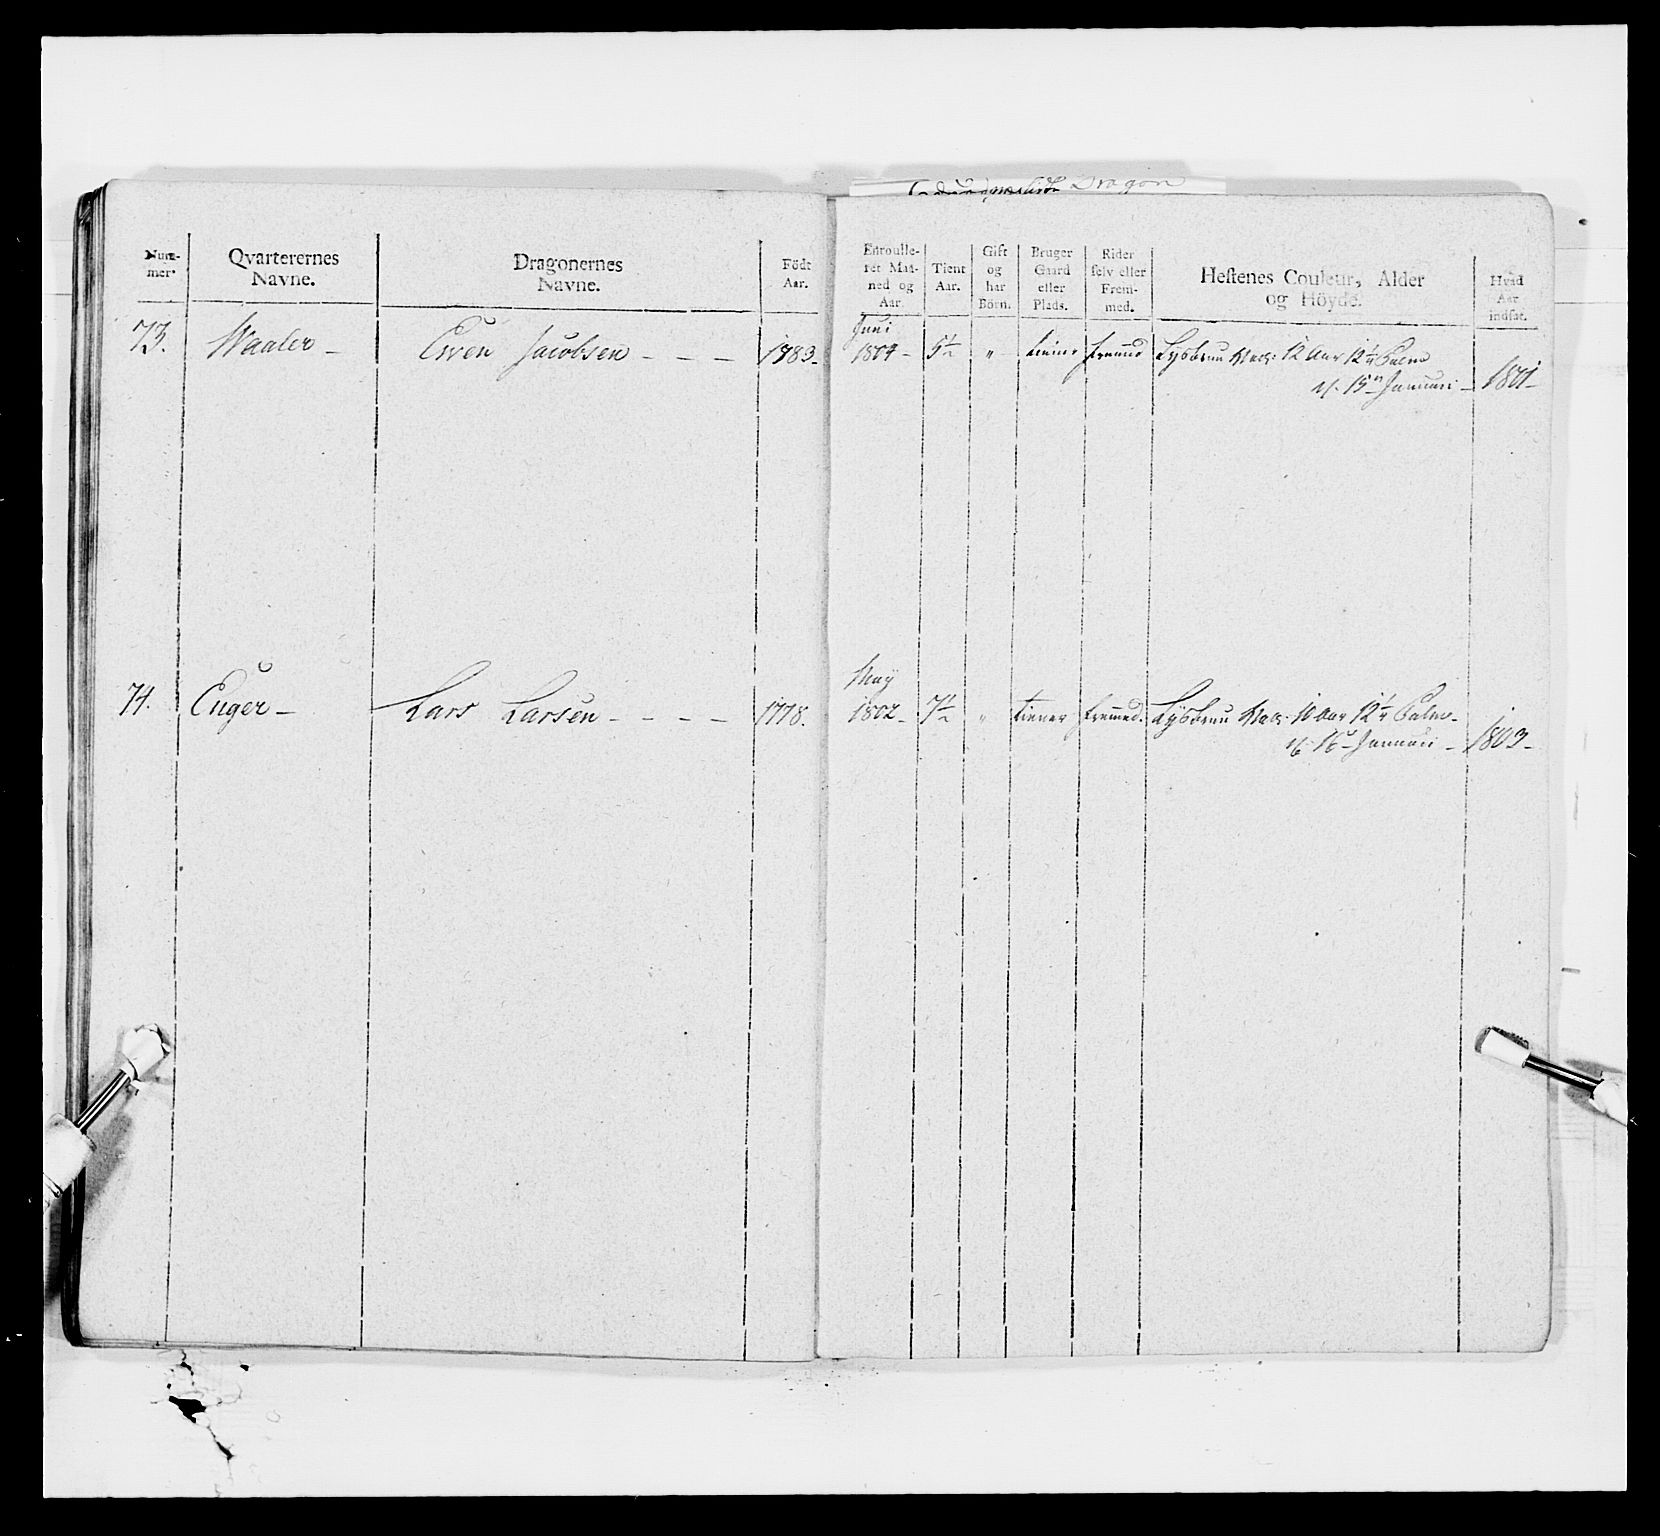 Dragon
Num-
mer.
Qvarterernes
Navne.
Dragonernes
Navne.
Födt
Aar.
Enroulle-
ret Maa-
ned og
Aar.
Tient
Aar.
Gift
og
har
Börn.
Bruger
Gaard
eller
Plads.
Rider
selv eller
Frem-
med.
Heſtenes Couleur, Alder
og Höyde.
Hvad
Aar
indſat.
73. Waaler - Ewen Jacobsen - - - 1783. Juni
1804 - 5½ " tiener fremed Lysbruun 12 Aar 12¼ Palm
15 Januari - 1801 -
74. Enger - Lars Larsen - - - - 1778. May
1802 - 7½ " tiener fremed. Lysbruun 10 Aar 12¼ Palm -
16 Januari - 1803 -